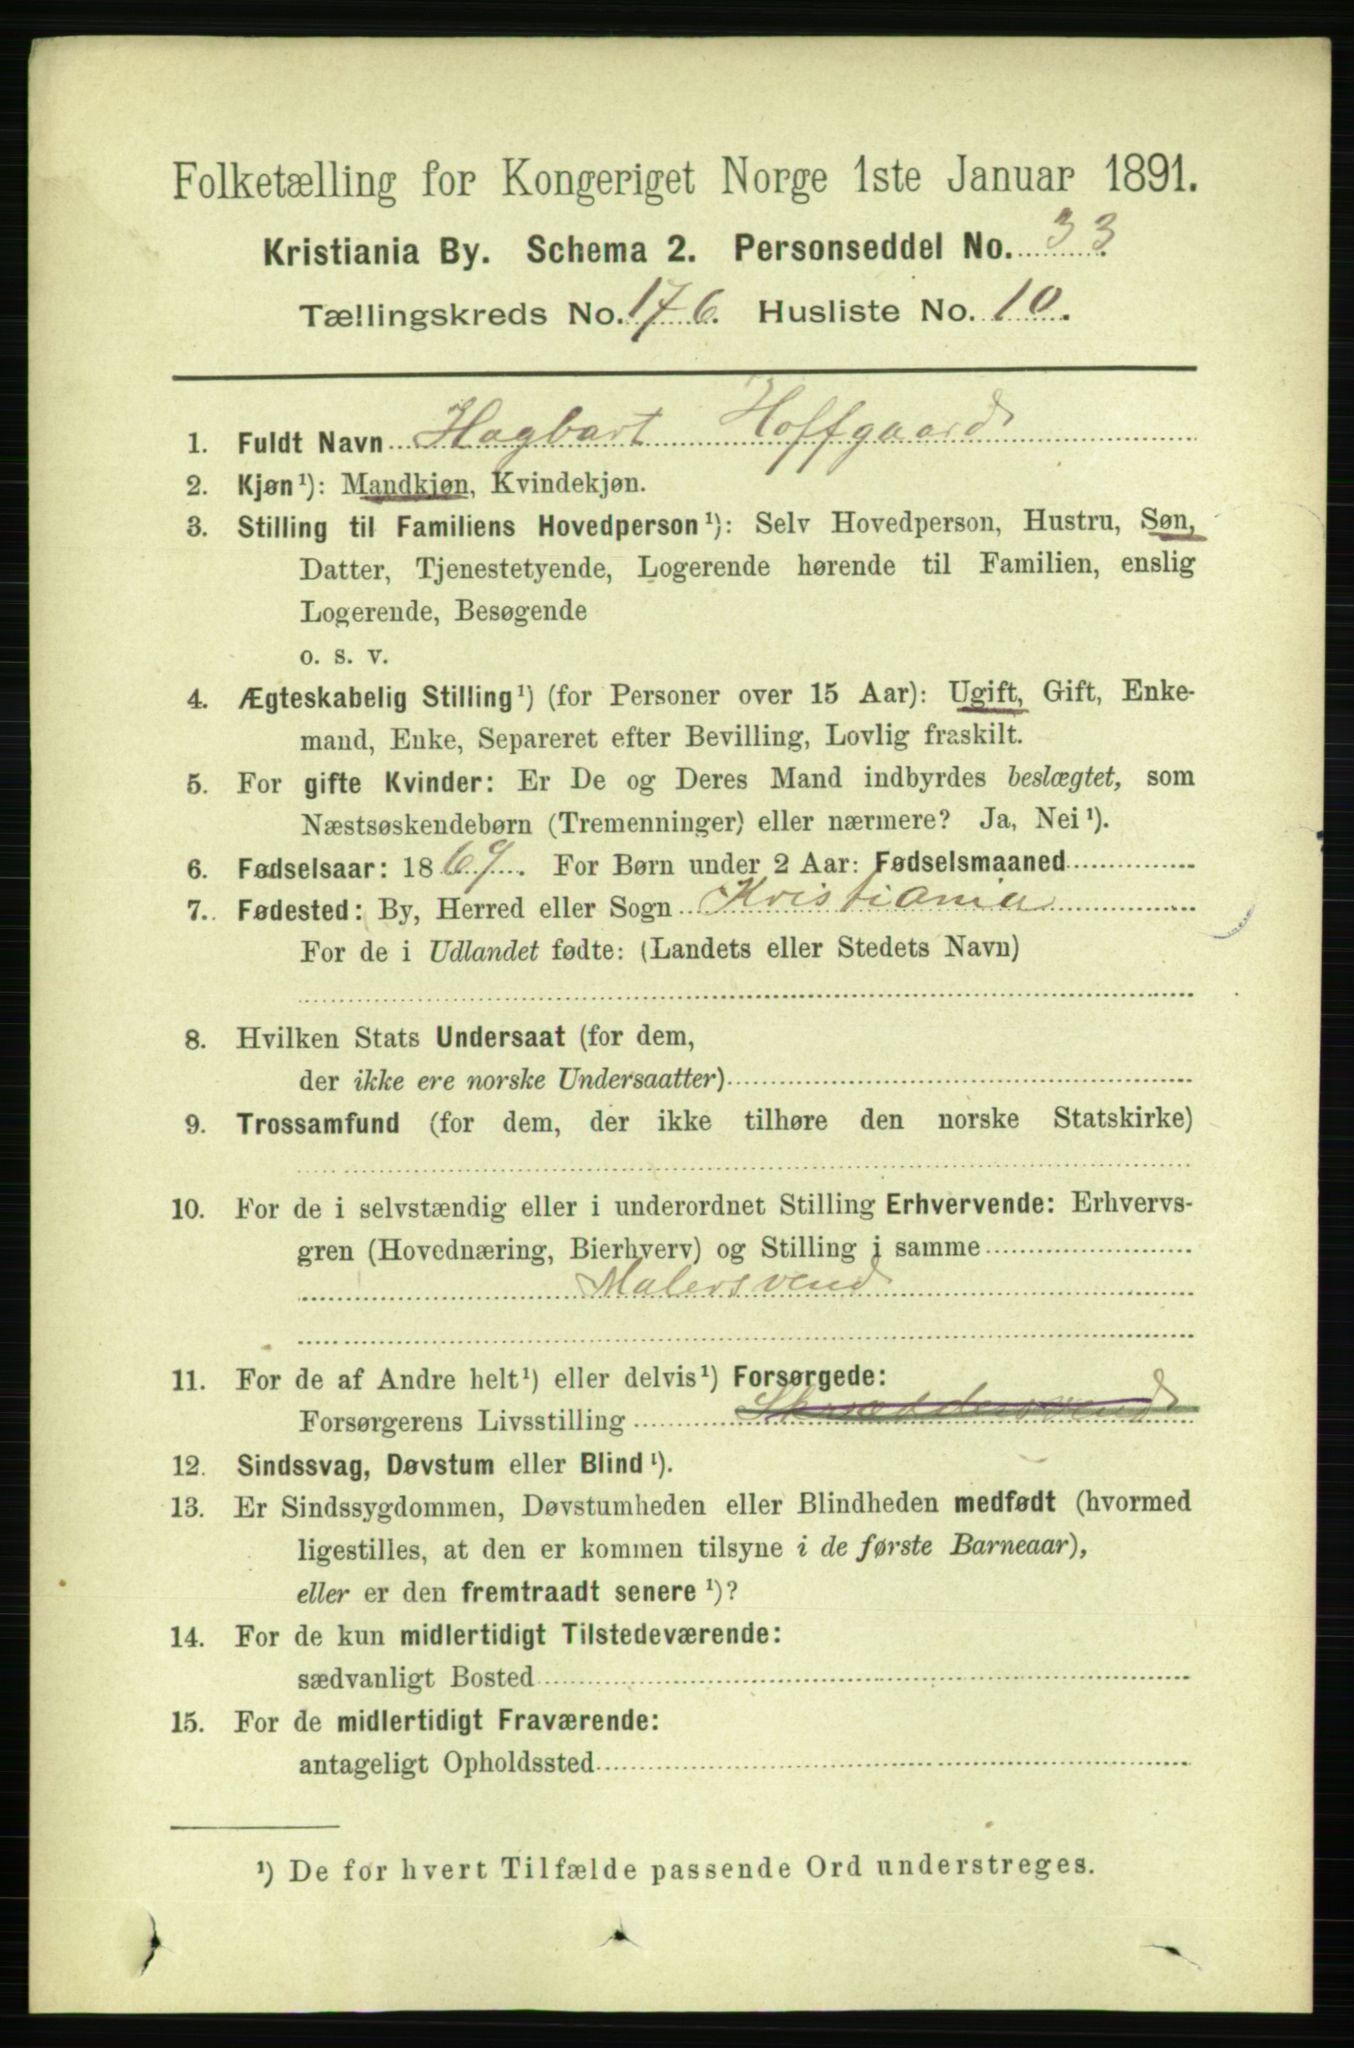 Folketælling for Kongeriget Norge 1ste Januar 1891.
Kristiania By. Schema 2. Personseddel No. 33
Tællingskreds No. 176. Husliste No. 10.
1. Fuldt Navn Hagbart Hoffgaard
2. Kjøn¹): Mandkjøn, Kvindekjøn.
3. Stilling til Familiens Hovedperson¹): Selv Hovedperson, Hustru, Søn,
Datter, Tjenestetyende, Logerende hørende til Familien, enslig
Logerende, Besøgende
o. s. v.
4. Ægteskabelig Stilling¹) (for Personer over 15 Aar): Ugift, Gift, Enke-
mand, Enke, Separeret efter Bevilling, Lovlig fraskilt.
5. For gifte Kvinder: Er De og Deres Mand indbyrdes beslægtet, som
Næstsøskendebørn (Tremenninger) eller nærmere? Ja, Nei¹).
6. Fødselsaar: 1869. For Børn under 2 Aar: Fødselsmaaned
7. Fødested: By, Herred eller Sogn Kristiania
For de i Udlandet fødte: (Landets eller Stedets Navn)
8. Hvilken Stats Undersaat (for dem,
der ikke ere norske Undersaatter)
9. Trossamfund (for dem, der ikke tilhøre den norske Statskirke)
10. For de i selvstændig eller i underordnet Stilling Erhvervende: Erhvervs-
gren (Hovednæring, Bierhverv) og Stilling i samme
Malersvend
11. For de af Andre helt¹) eller delvis¹) Forsørgede:
Forsørgerens Livsstilling Skræddersvend
12. Sindssvag, Døvstum eller Blind¹).
13. Er Sindssygdommen, Døvstumheden eller Blindheden medfødt (hvormed
ligestilles, at den er kommen tilsyne i de første Barneaar),
eller er den fremtraadt senere¹)?
14. For de kun midlertidigt Tilstedeværende:
sædvanligt Bosted
15. For de midlertidigt Fraværende:
antageligt Opholdssted
¹) De for hvert Tilfælde passende Ord understreges.